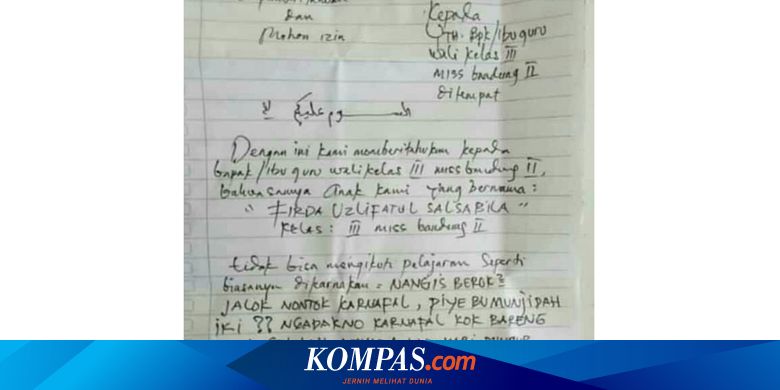 dan
Mohon izin
Kepada
YTH. Bpk/ibu guru
wali kelas III
MISS bandung II
ditempat
السلام عليكم
Dengan ini kami memberitahukan kepada
bapak/ibu guru wali kelas III miss bandung II,
bahwasannya anak kami yang bernama:
" FIRDA UZLIFATUL SALSABILA "
Kelas: III miss bandung II
tidak bisa mengikuti pelajaran seperti
biasanya dikarnakan = NANGIS BEROK²
JALOK NONTOK KARNAFAL, PIYE BU MUNJIDAH
iKi ?? NGADAKNO KARNAFAL KOK BARENG
KOMPAS.com
JERNIH MELIHAT DUNIA